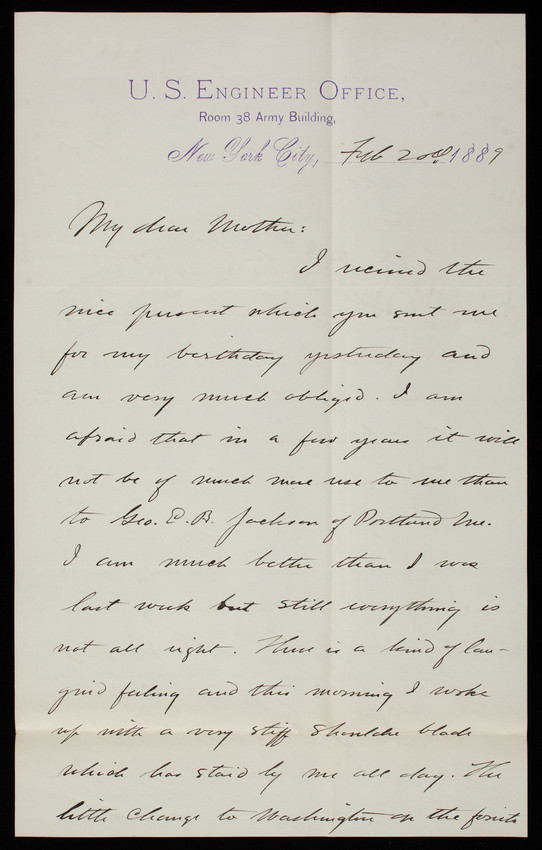 U. S. Engineer Office,
Room 38 Army Building,
New York City, Feb 20th 1889
My dear Mother:
I received the
nice present which you sent me
for my birthday yesterday and
am very much obliged. I am
afraid that in a few years it will
not be of much more use to me than
to Geo. E. B. Jackson of Portland Me.
I am much better than I was
last week but still everything is
not all right. There is a kind of lan-
guid feeling and this morning I woke
up with a very stiff shoulder blade
which has staid by me all day. The
little change to Washington on the